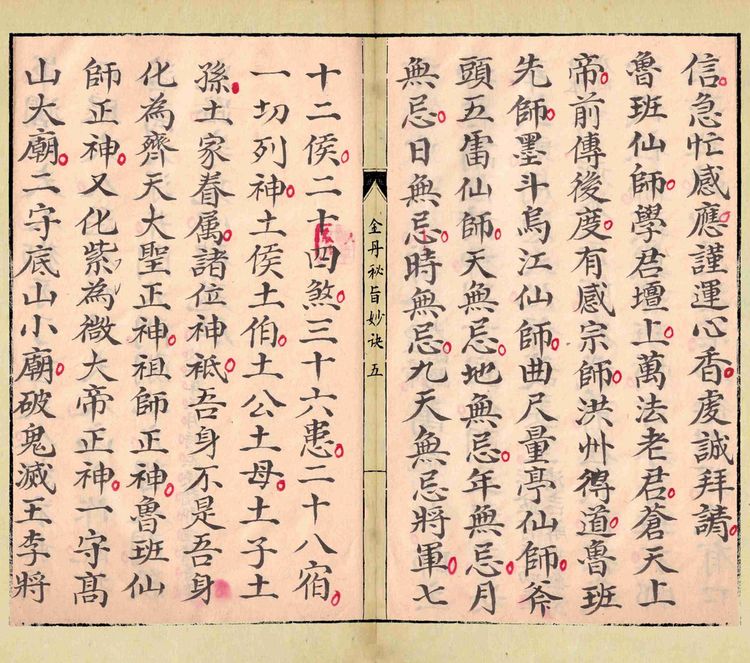 信急忙感應謹運心香虔誠拜請
魯班仙師學君壇上萬法老君蒼天上
帝前傳後度有感宗師洪州得道魯班
先師墨斗烏江仙師曲尺量亭仙師斧
頭五雷仙師天無忌地無忌年無忌月
無忌日無忌時無忌九天無忌將軍七
全丹祕旨妙诀 五
十二侯二十四煞三十六患二十八宿
一切列神土侯土伯土公土母土子土
孫土家眷属諸位神祇吾身不是吾身
化為齊天大聖正神祖師正神魯班仙
師正神又化紫為微大帝正神一守髙
山大廟二守底山小廟破鬼滅王李將